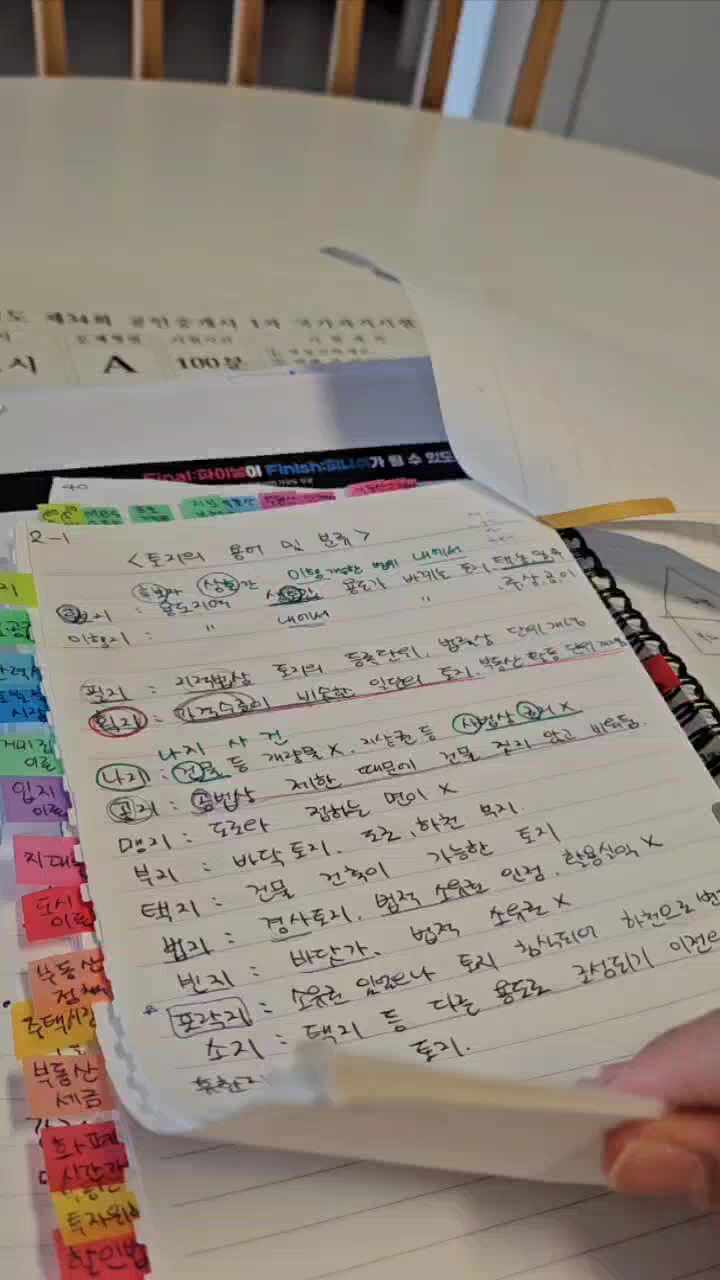 제34회 공인중개사 1차 국가자격시험
A 100분
Final:파이널이 Finish:피니쉬가 될 수 있도
40
2-1
<토지의 용어 및 분류>
이행 가능한 범위 내에서
후보지 : 용도지역 상호간 용도가 바뀌는 토지
이행지 : " 내에서 "
필지 : 지적법상 토지의 등록단위. 법률상 단위개념
획지 : 가격수준이 비슷한 일단의 토지. 부동산 활동 단위개념
나지 사건
나지 : 건물 등 개량물 X, 지상권 등 사법상 제한 X
공지 : 공법상 제한 때문에 건물 짓지 않고 비워둠.
맹지 : 도로와 접하는 면이 X
부지 : 바닥토지. 도로, 하천 부지.
택지 : 건물 건축이 가능한 토지
법지 : 경사토지. 법적 소유권 인정. 활용실익 X
빈지 : 바닷가. 법적 소유권 X
포락지 : 소유권 있었으나 토지 침식되어 하천으로 변
소지 : 택지 등 다른 용도로 조성되기 이전의
토지.
휴한지
입지
이론
지대
도시
이론
부동산
정책
주택시장
부동산
세금
화폐
시간가
투자위
할인법